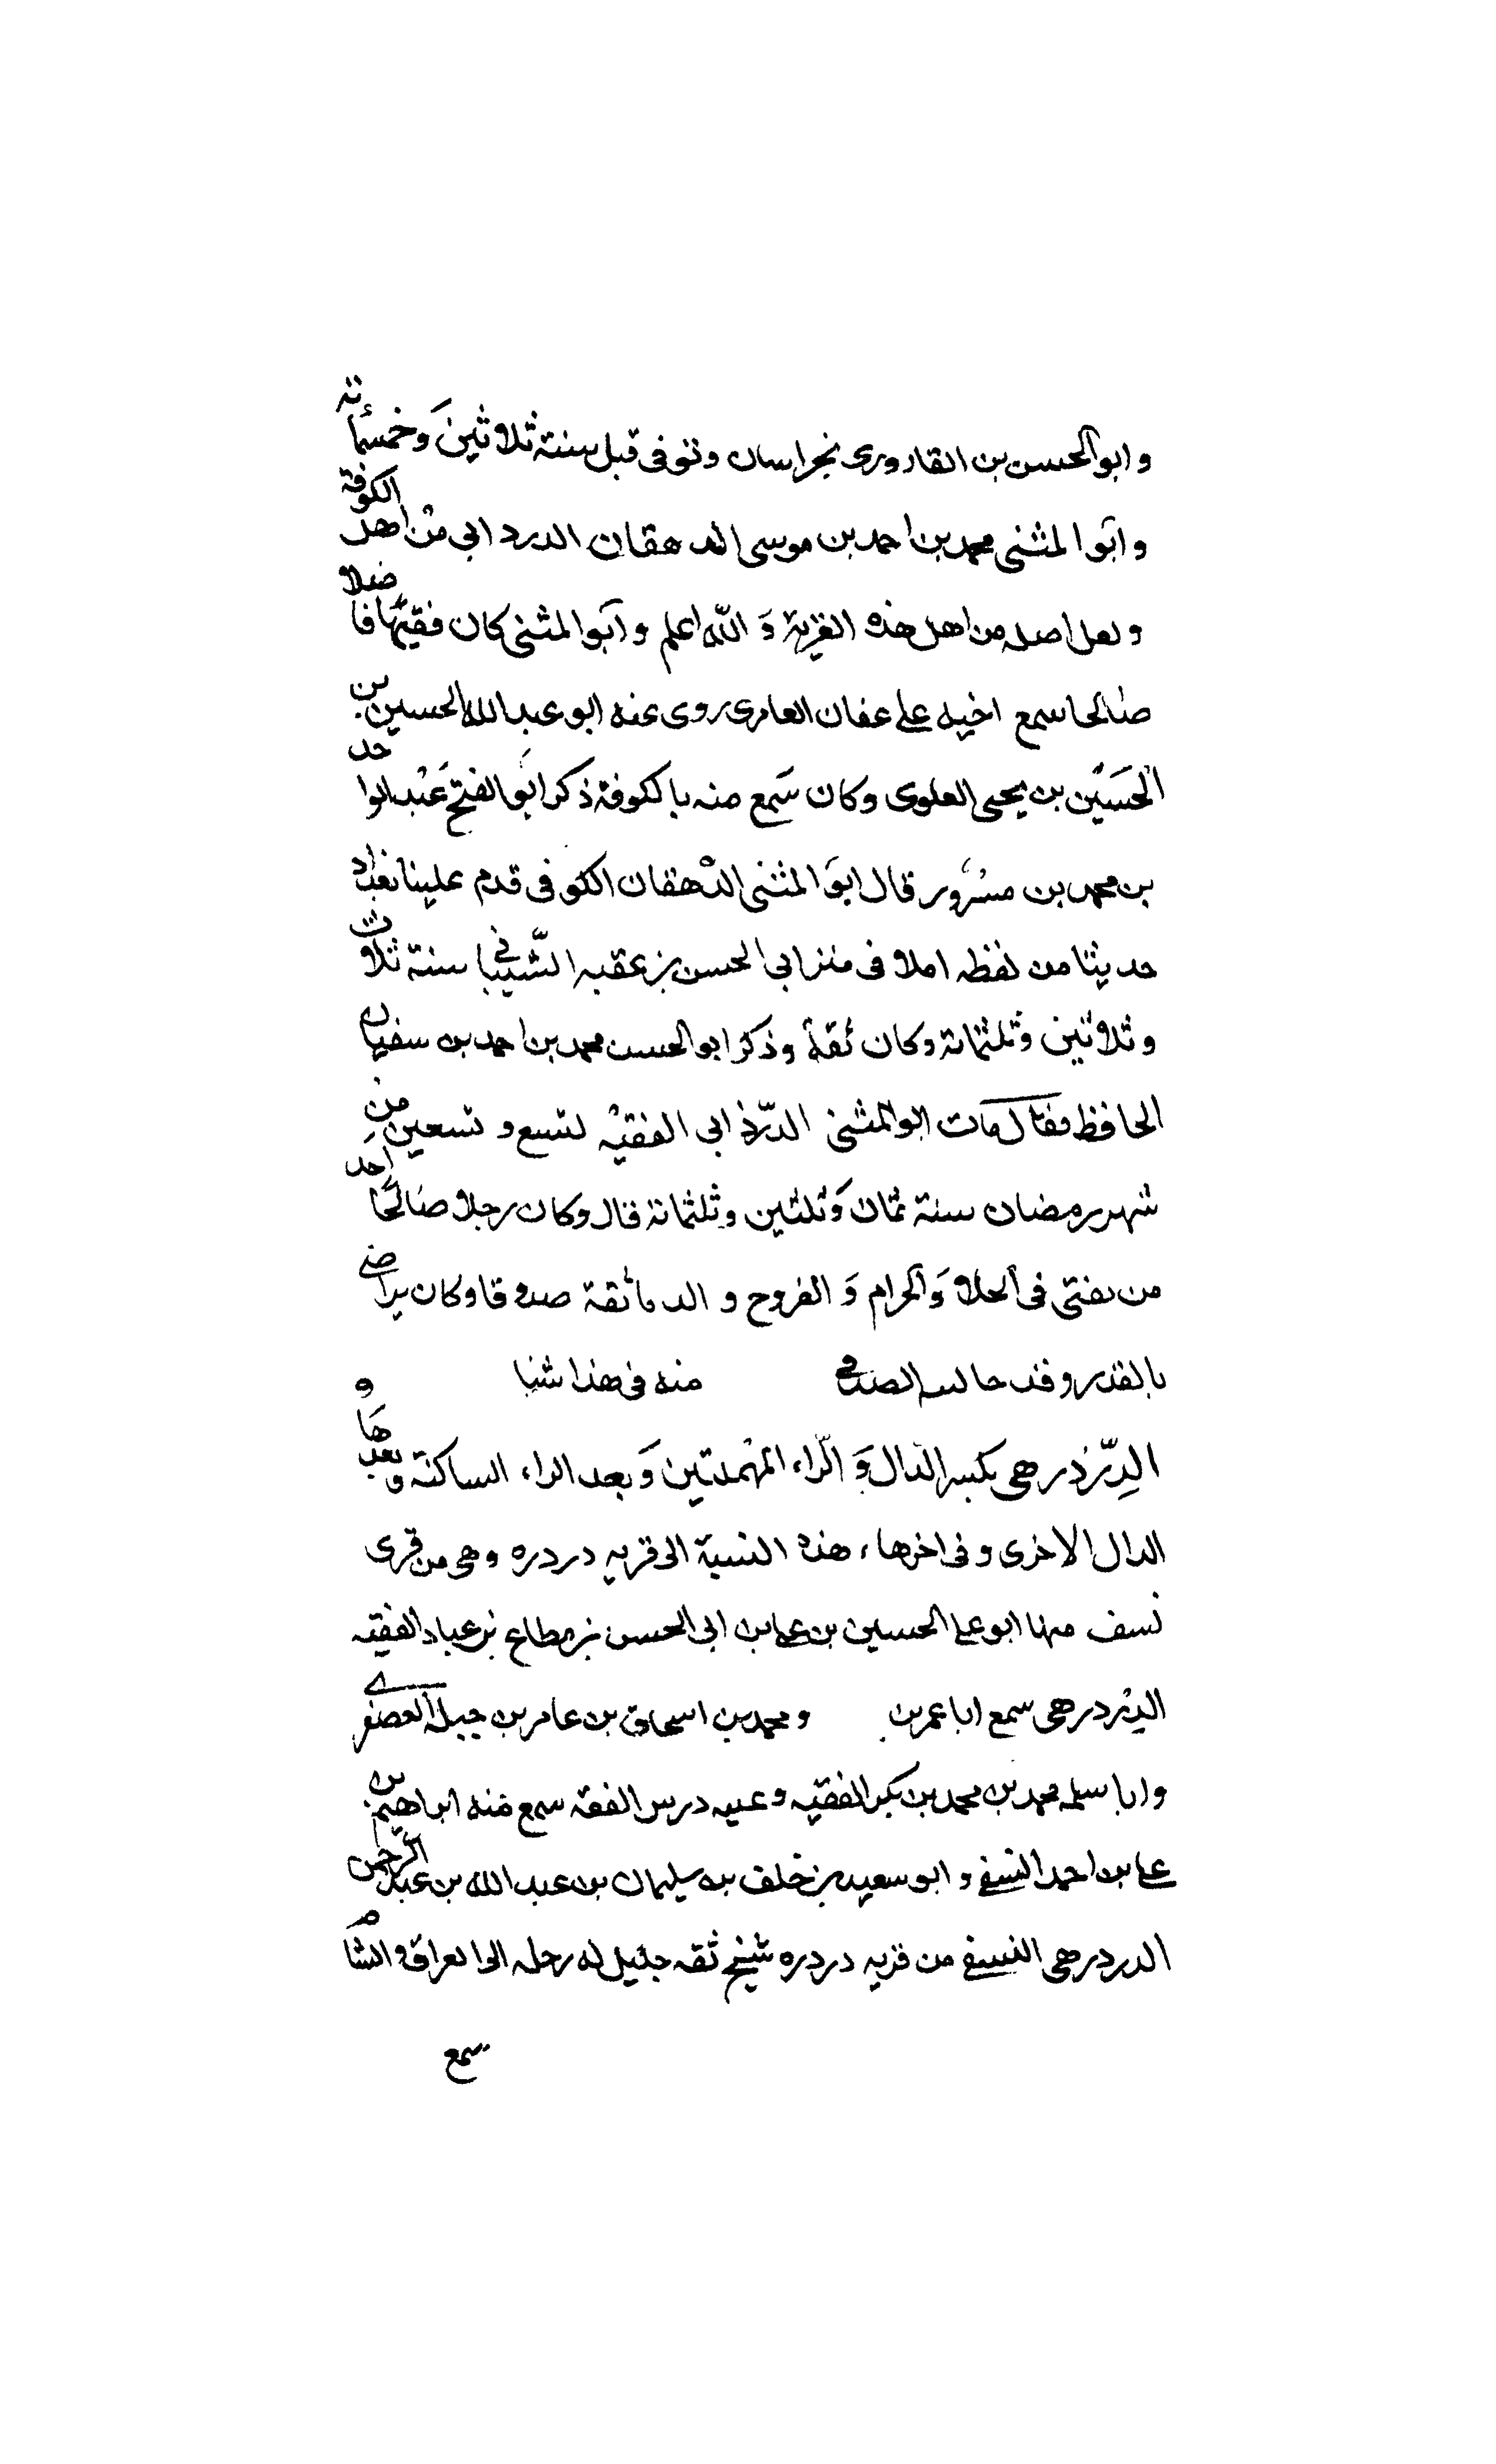 وابو الحسن بن القادوري بخراسان وتوفى قبل سنة ثلاثين وخمسمائة
وابو المثنى محمد بن احمد بن موسى الدهقان الدردابي من اهل الكوفة
ولعل اصله من اهل هذه القرية والله اعلم وابو المثنى كان فقيها فاضلا
صالحا سمع اخيه على عفان العامرى روى عنه ابو عبد الله الحسين بن
الحسين بن يحيى العلوى وكان سمع منه بالكوفة ذكر ابو الفتح عبد الواحد
بن محمد بن مسرور قال ابو المثنى الدهقان الكوفى قدم علينا بغداد
حديثا من لفظه املا فى منز ابي الحسن بن عقبه الشيباني سنة ثلاث
وثلاثين وثلثمائة وكان ثقة وذكر ابو الحسن محمد بن احمد بن سفيان
الحافظ فقال مات ابو المثنى الدرذابى الفقيه لتسع وتسعين من
شهر رمضان سنة ثمان وثلثين وثلثمائة قال وكان رجلا صالحا احد
من يفتى فى الحلا والحرام والفروح والدما ثقة صدوقا وكان يراضى
بالقدر وقد جالسه منه فى هذا شيا
الدرذرهى بكسر الدال والراء المهملتين وبعد الراء الساكنة وبعدها و
الدال الاخرى وفى اخرها، هذه النسبة الى قريه دردره وهى من قرى
نسف منها ابو على الحسين بن على بن ابى الحسن بن مطاع بن عباد الفقيه
الدردرهى سمع ابا عمر بن ومحمد بن اسحاق بن عامر بن جبلة العصفرى
وابا سلمه محمد بن محمد بن بكر الفقيه وعليه درس الفقه سمع منه ابراهيم بن
على بن احمد النسفى وابو سعيد بن خلف بن سليمان بن عبد الله بن عبد الرحمن
الدردرهى النسفى من قريه دردره شيخ ثقه جليل له رحله الى العراق والشام
سمع